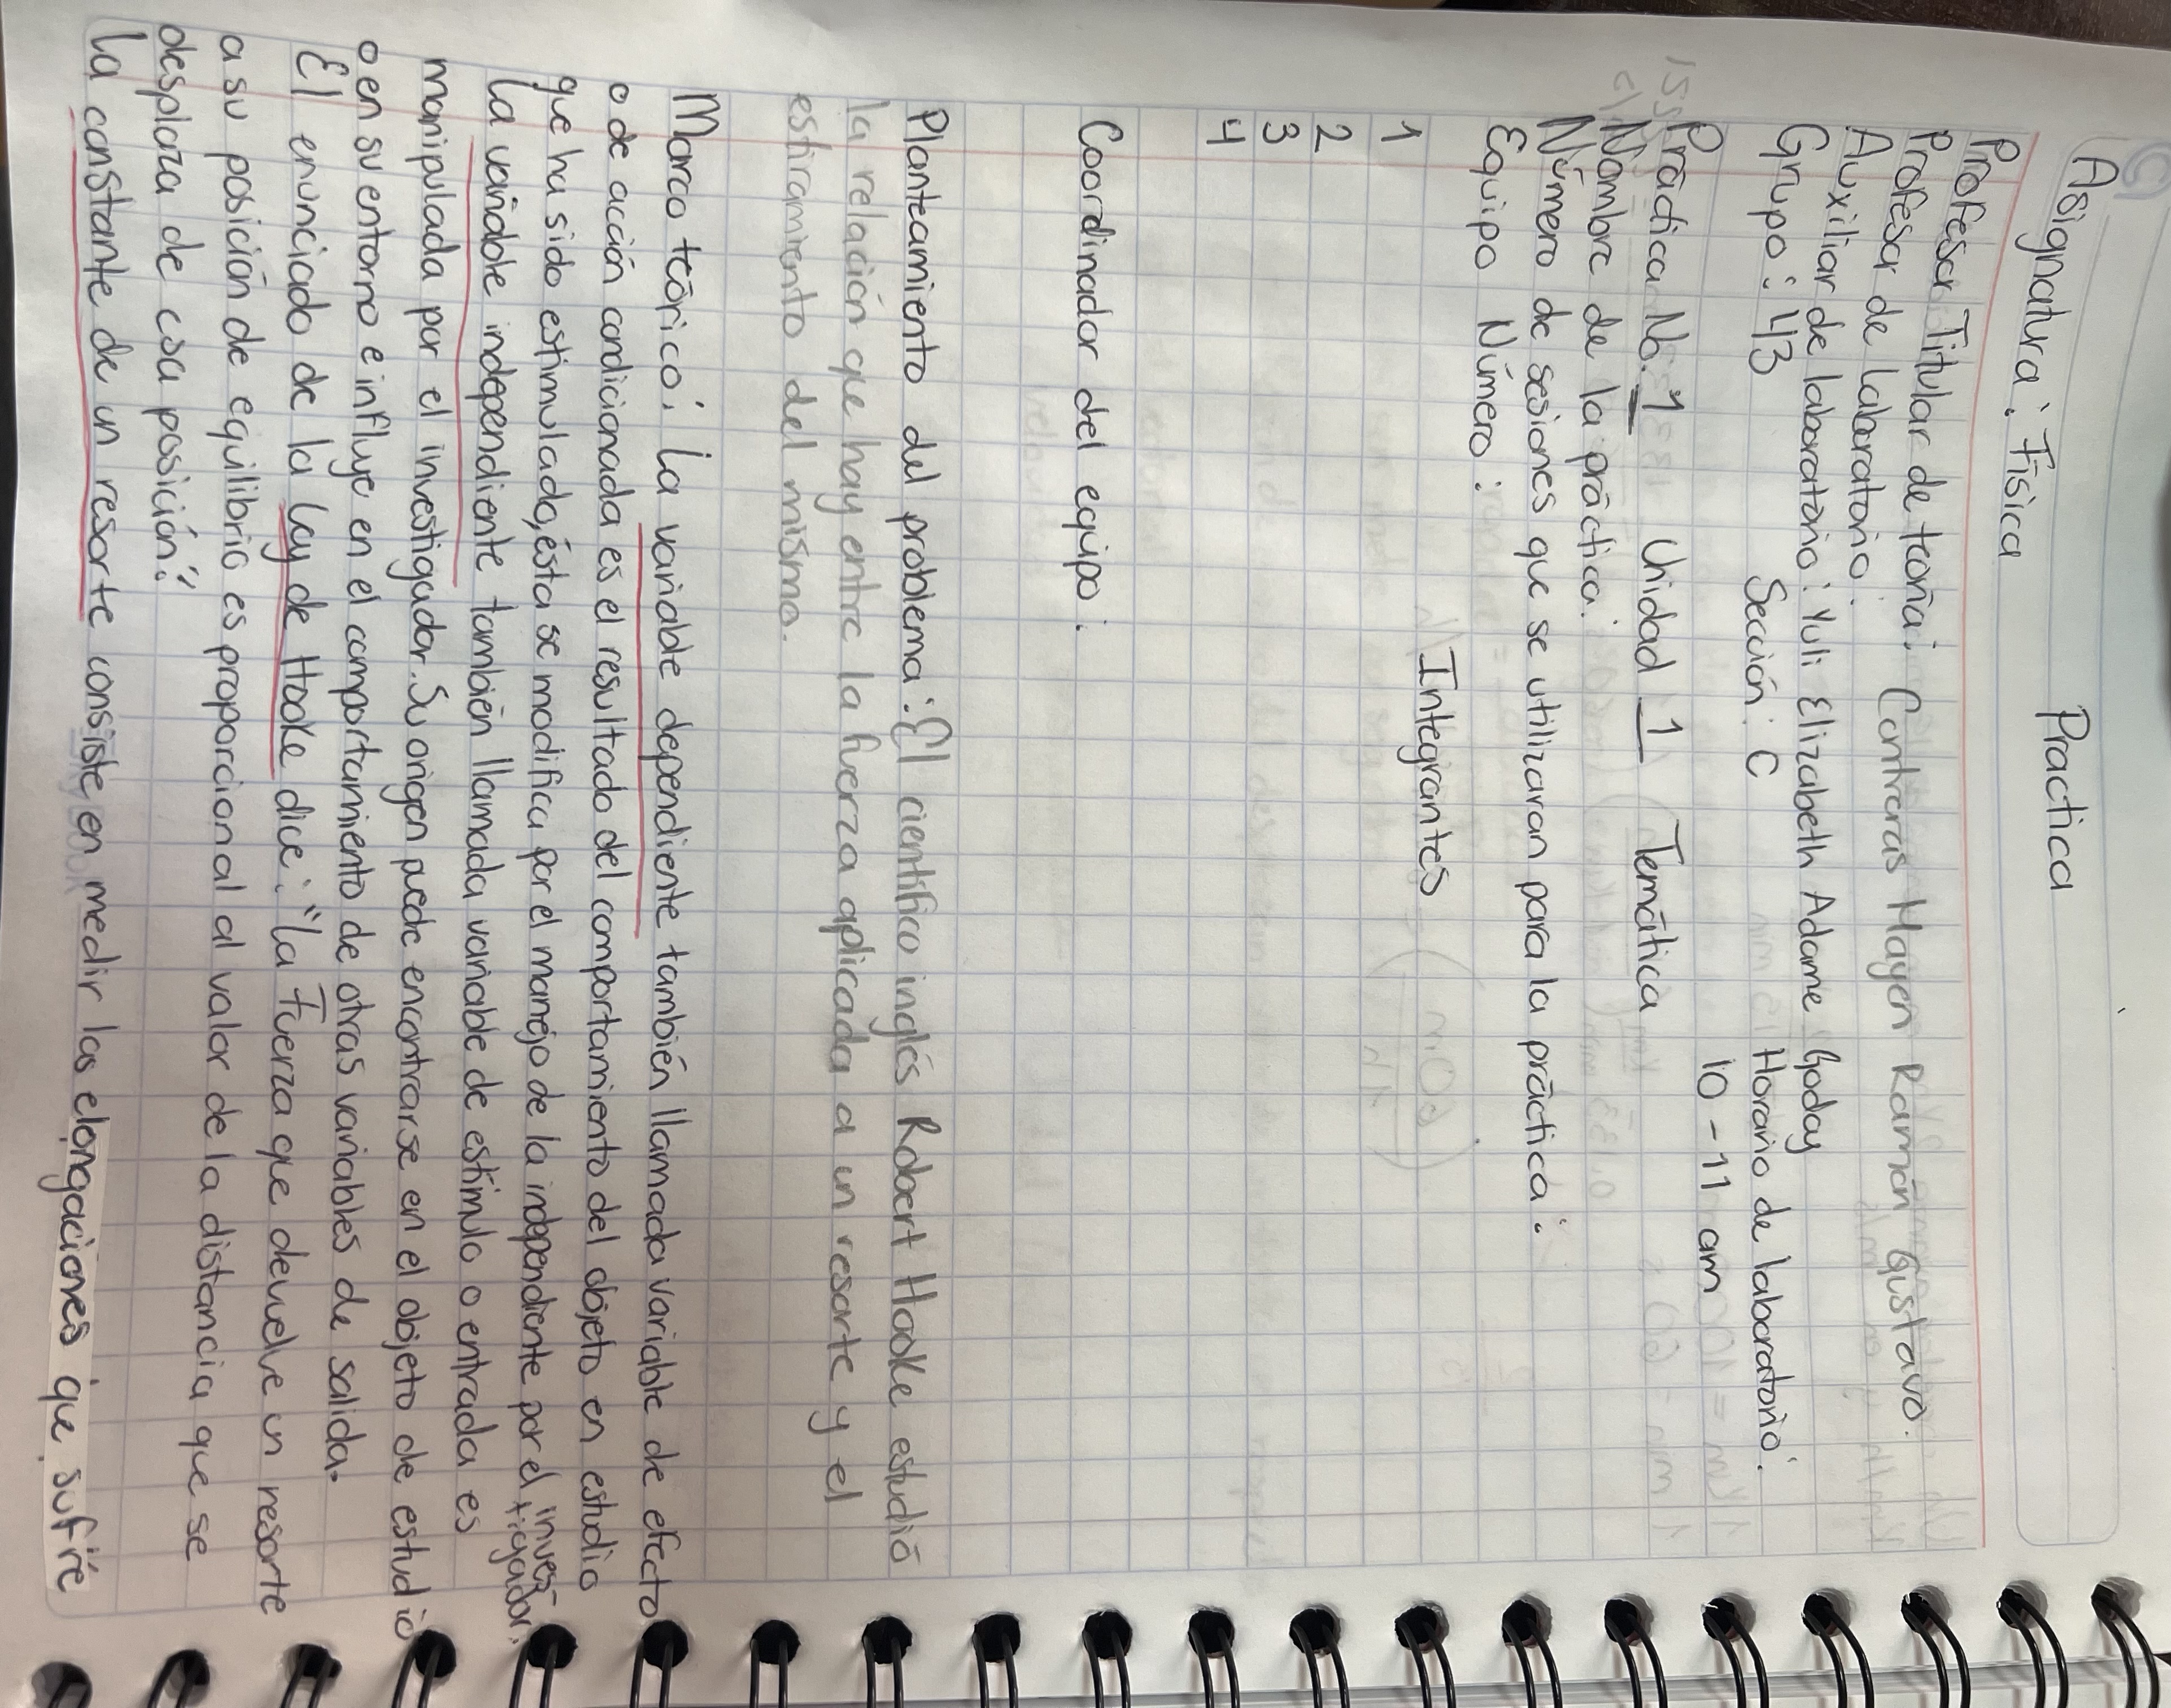 Practica
Asignatura: Física
Profesor Titular de teoría: Contreras Hayen Ramón Gustavo.
Profesor de laboratorio:
Auxiliar de laboratorio: Yuli Elizabeth Adame Goday
Grupo: 43 Sección: C Horario de laboratorio:
10 - 11 am
Práctica No. 1 Unidad 1 Temática
Nombre de la práctica:
Número de sesiones que se utilizaran para la práctica:
Equipo Número:
Integrantes
1
2
3
4
Coordinador del equipo:
Planteamiento del problema: El científico inglés Robert Hooke estudió
la relación que hay entre la fuerza aplicada a un resorte y el
estiramiento del mismo.
Marco teórico: La variable dependiente también llamada variable de efecto
o de acción condicionada es el resultado del comportamiento del objeto en estudio
que ha sido estimulado, ésta se modifica por el manejo de la independiente por el inves-
tigador.
La variable independiente también llamada variable de estímulo o entrada es
manipulada por el investigador. Su origen puede encontrarse en el objeto de estudio
o en su entorno e influye en el comportamiento de otras variables de salida.
El enunciado de la ley de Hooke dice: "La Fuerza que devuelve un resorte
a su posición de equilibrio es proporcional al valor de la distancia que se
desplaza de esa posición."
La constante de un resorte consiste en medir las elongaciones que sufre